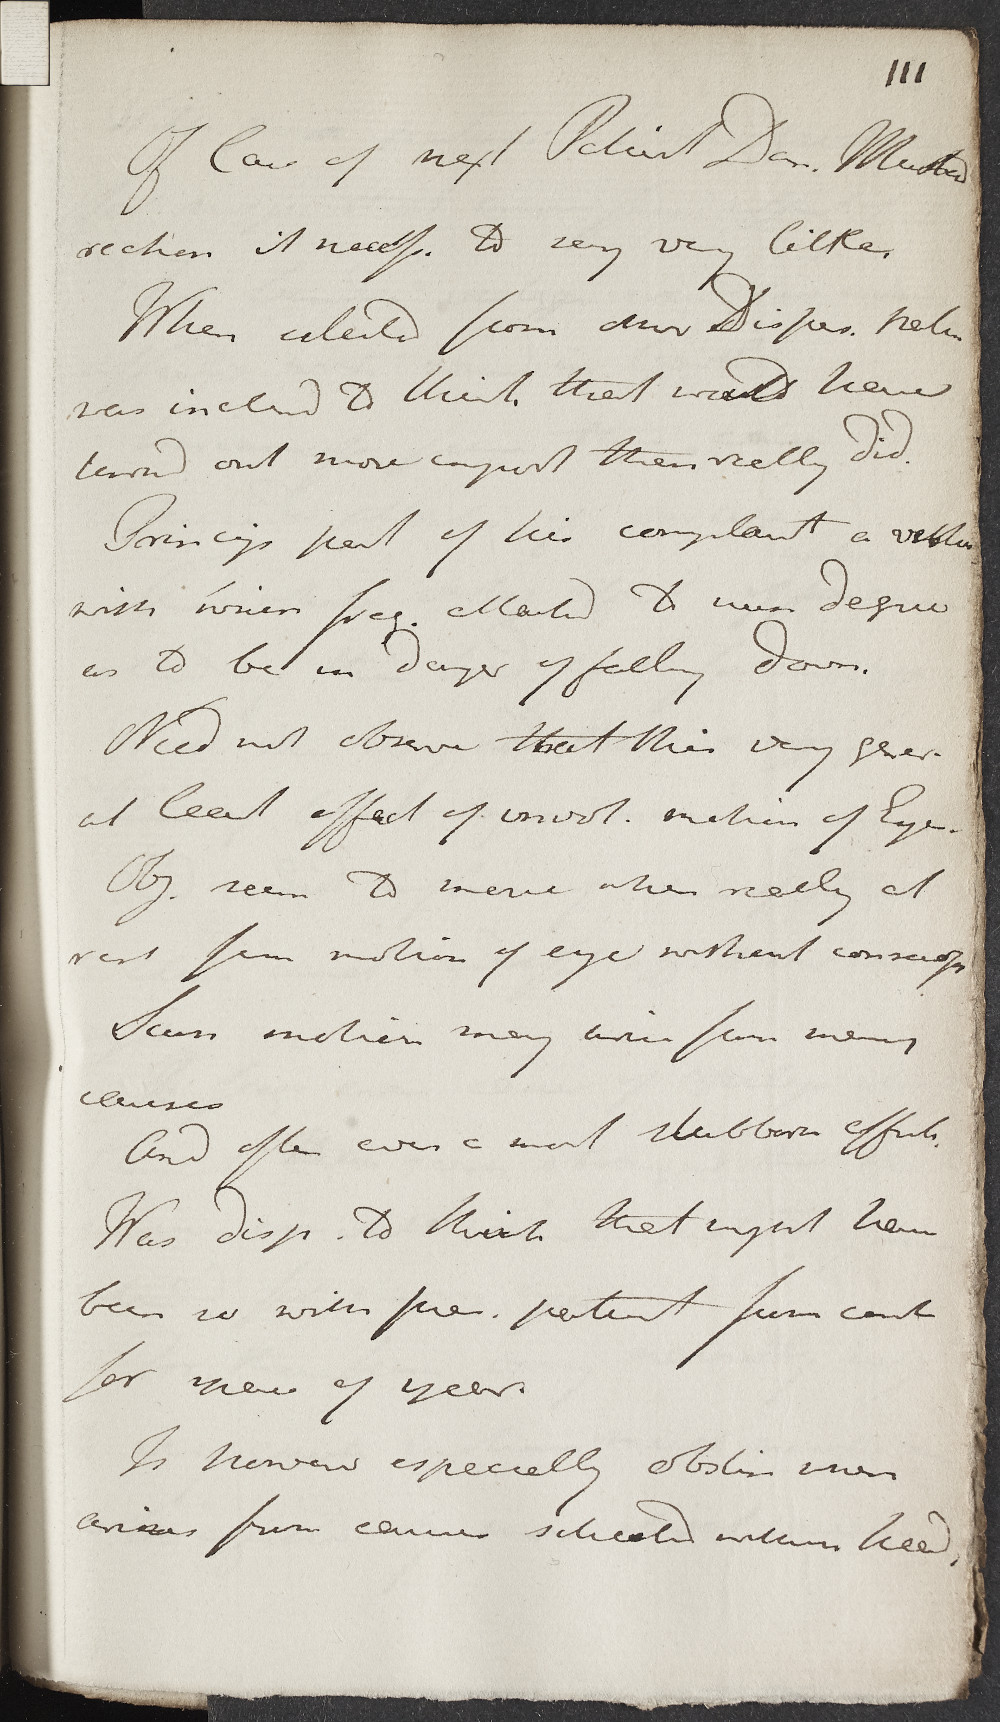 111
Of Case of next Patient Dan.
reckon it necess. to say very little.
When selected from our Dispens.
was inclined to think that would have
turnd out more import than really did.
Princip part of his complaint a
with which freq. attacked to such degree
as to be in danger of falling down.
Need not observe that this very gener.
at least effect of invol. motion of Eye.
Obj. seem to move when really at
rest from motion of eye without consciousß
Such motion may arise from many
causes
And often even a most stubborn affect.
Was disp. to think that might have
been so with pres. patient from cont
for space of year.
Is however especially obstin when
arises from causes situated within head,